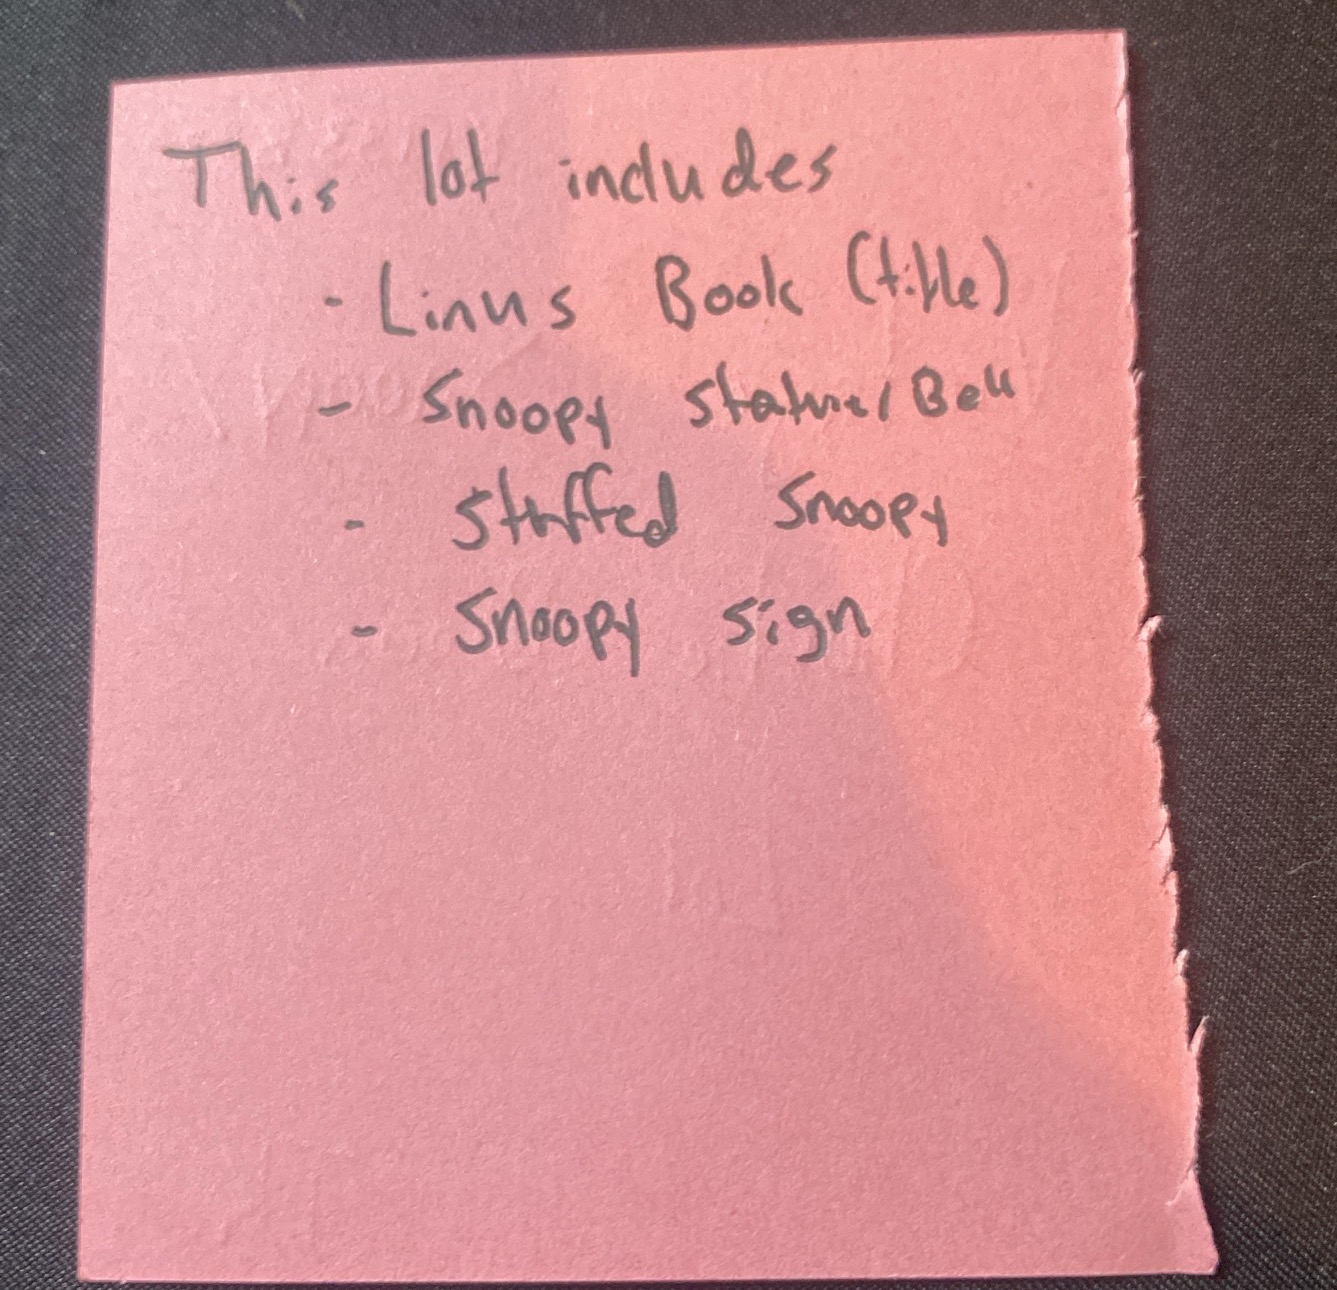 This lot includes
- Linus Book (title)
- Snoopy Statue/Bell
- Stuffed Snoopy
- Snoopy sign